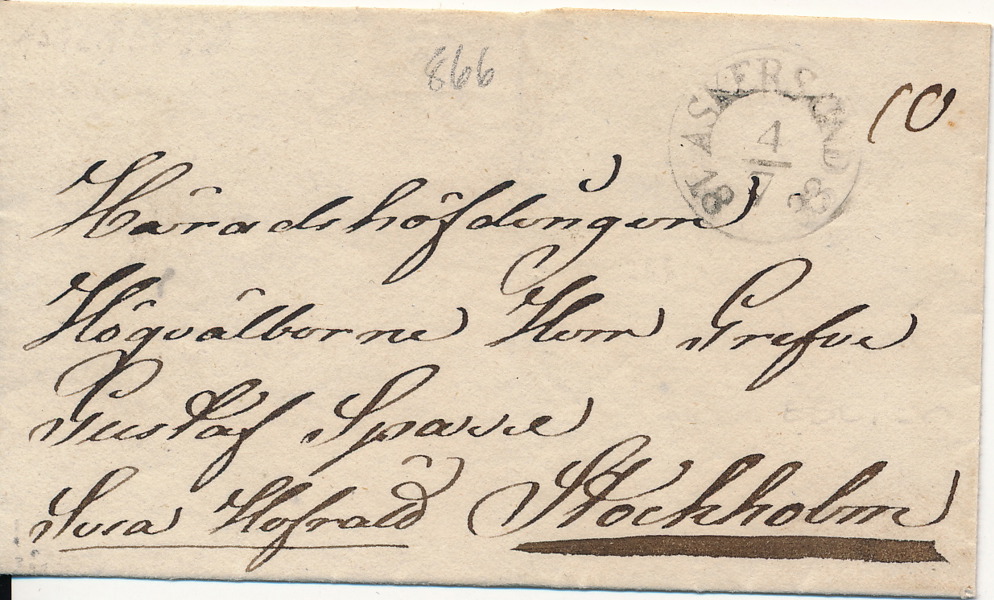 866
ASKERSUND
4
7
18
10
Häradshöfdingen
Högvälborne Herr Grefve
Gustaf Sparre
Svea Hofrätt Stockholm